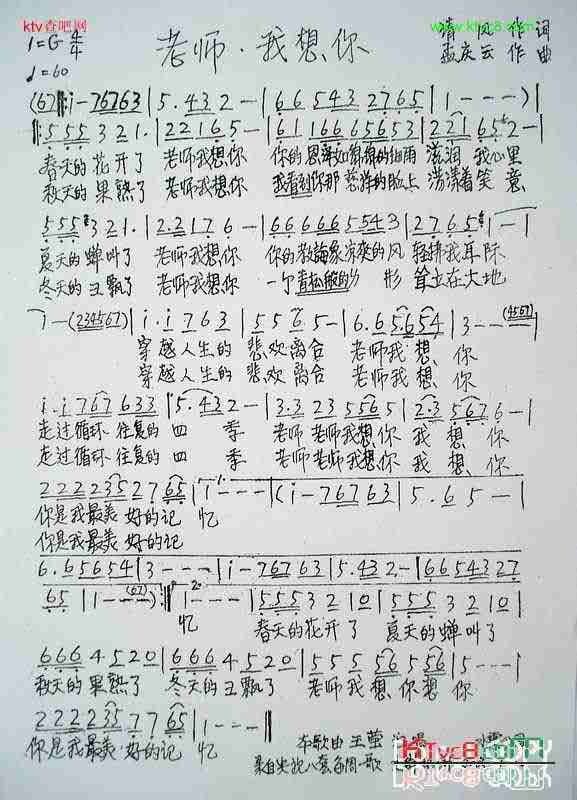 ktv查吧网
www.ktvc8.com
1=G 4/4
老师·我想你
清风作词
孟庆云作曲
♩=60
(67)‖: i - 7 6 7 6 3 | 5. 4 3 2 - | 6 6 5 4 3 2 7 6 5 | 1 - - - ) |
5 5 5 3 2 1. | 2 2 1 6 5 - | 6 1 1 6 6 6 5 6 5 3 | 2 2 1 6 5 2 - |
春天的花开了 老师我想你 你的恩泽如绵绵的细雨 滋润我心里
秋天的果熟了 老师我想你 我看到你那慈祥的脸上 荡漾着笑意
5 5 5 3 2 1. | 2. 2 1 7 6 - | 6 6 6 6 6 5 5 4 3 | 2 7 6 5 1 - |
夏天的蝉叫了 老师我想你 你的教诲象凉爽的风 轻拂我耳际
冬天的雪飘了 老师我想你 一个青松般的身形 耸立在大地
1 - - (2 3 4 5 6 7) | i. i 7 6 3 | 5 5 6 5 - | 6. 6 5 6 5 4 | 3 - - (4 5 6 7) |
穿越人生的 悲欢离合 老师我想你
穿越人生的 悲欢离合 老师我想你
i. i 7 6 7 6 3 3 | 5. 4 3 2 - | 3. 3 2 3 5 5 6 5 | 2. 3 5 6 7 6 - |
走过循环往复的四季 老师老师我想你 我想你
走过循环往复的四季 老师老师我想你 我想你
2 2 2 2 3 5 2 7 6 5 | 1 - - - | ( i - 7 6 7 6 3 | 5. 6 5 - |
你是我最美好的记忆
你是我最美好的记
6. 6 5 6 5 4 | 3 - - - | i - 7 6 7 6 3 | 5. 4 3 2 - | 6 6 5 4 3 2 7
6 5 | 1 - - (67) :‖ 1 - - - | 5 5 5 3 2 1 0 | 5 5 5 3 2 1 0 |
忆 春天的花开了 夏天的蝉叫了
6 6 6 4 5 2 0 | 6 6 6 4 5 2 0 | 5 5 5 5 6 5 5 6 | 5 - - - |
秋天的果熟了 冬天的雪飘了 老师我想你想你
2 2 2 2 3 5 7 7 6 5 | 1 - - - ‖
你是我最美好的记忆
本歌曲 王莹 演唱
录自央视八套每周一歌
KTvc8.com